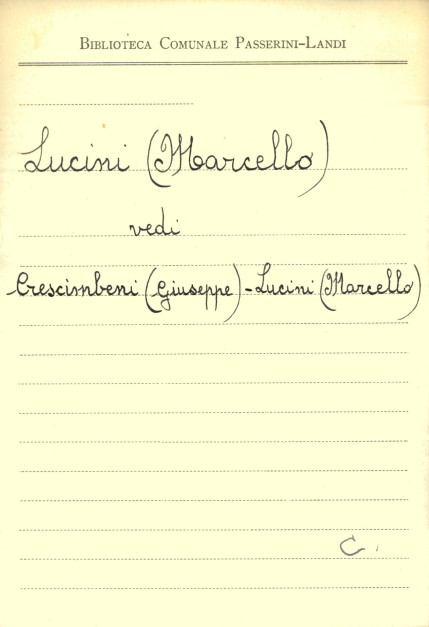 BIBLIOTECA COMUNALE PASSERINI-LANDI
Lucini (Marcello)
vedi
Crescimbeni (Giuseppe) - Lucini (Marcello)
C.